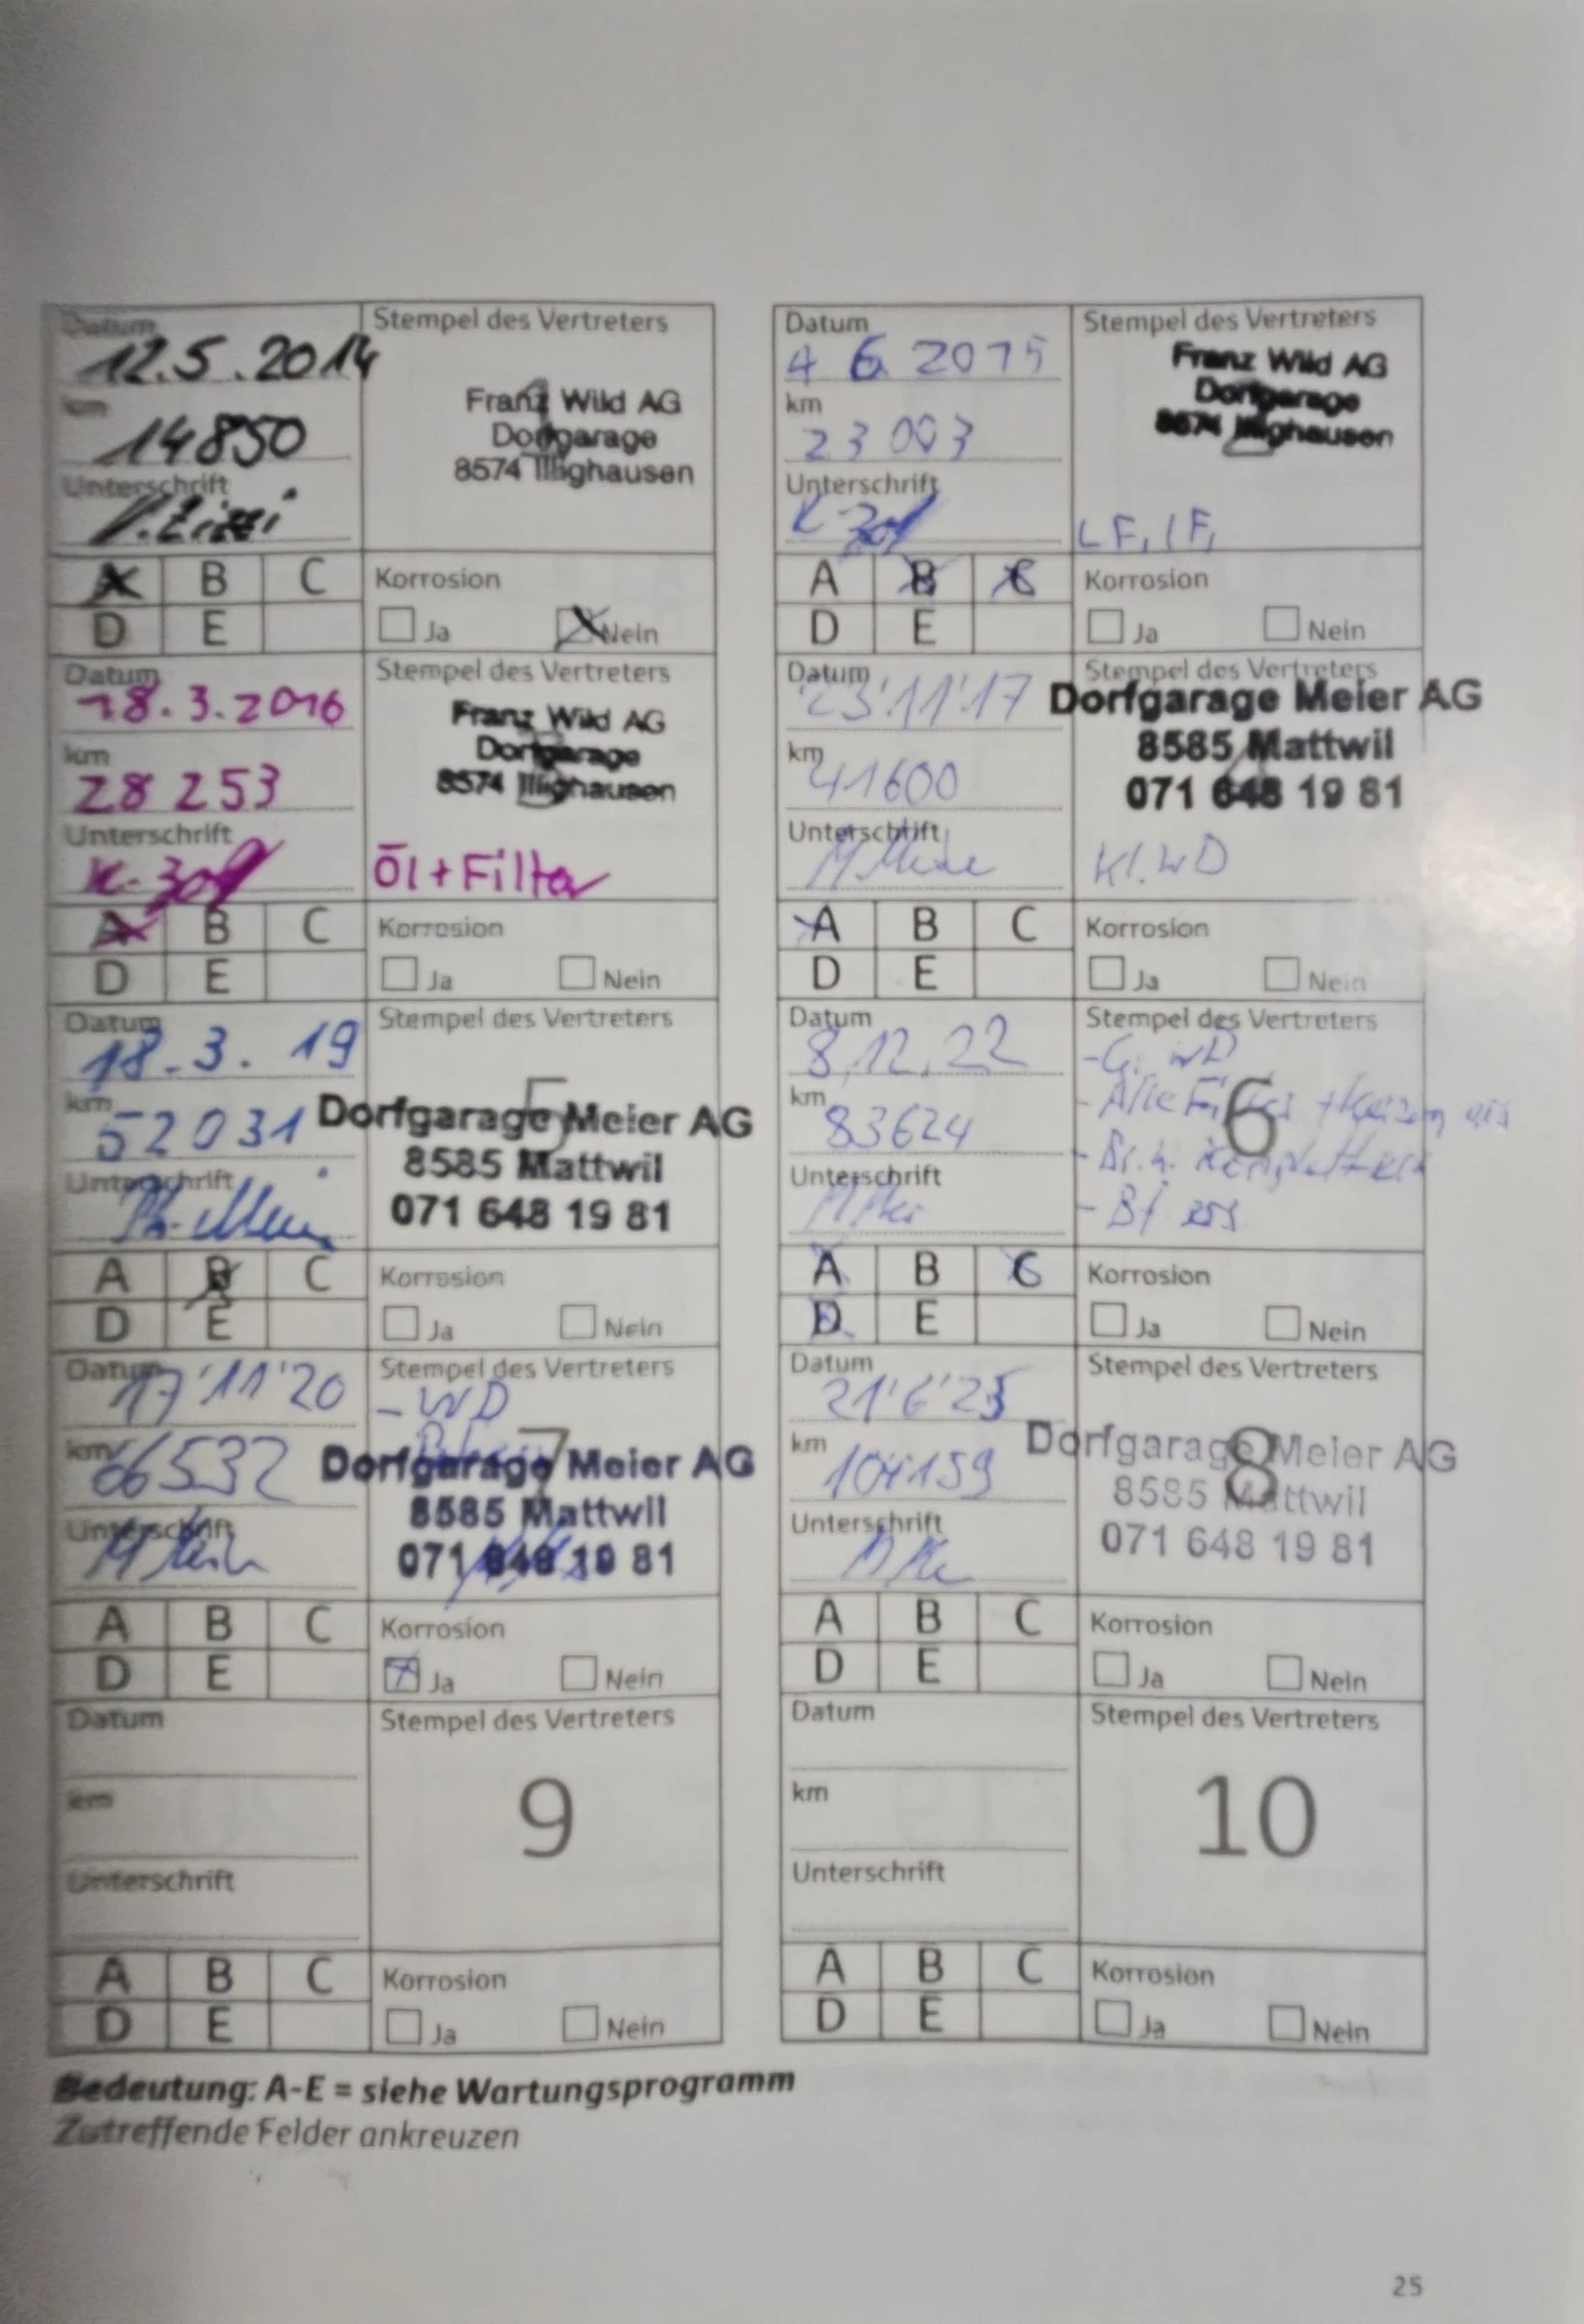 Datum
12.5.2014
km
14850
Unterschrift
Stempel des Vertreters
1
Franz Wild AG
Dorfgarage
8574 Illighausen
A B C
D E
Korrosion
Ja Nein
Datum
4 6 2015
km
23 003
Unterschrift
Stempel des Vertreters
Franz Wild AG
Dorfgarage
8574 Illighausen
2
LF, IF,
A B C
D E
Korrosion
Ja Nein
Datum
18.3.2016
km
28 253
Unterschrift
Stempel des Vertreters
Franz Wild AG
Dorfgarage
8574 Illighausen
Öl+Filter
A B C
D E
Korrosion
Ja Nein
Datum
23'11'17
km
41600
Unterschrift
Stempel des Vertreters
Dorfgarage Meier AG
8585 Mattwil
071 648 19 81
4
Kl. WD
A B C
D E
Korrosion
Ja Nein
Datum
18.3.19
km
52031
Unterschrift
Stempel des Vertreters
5
Dorfgarage Meier AG
8585 Mattwil
071 648 19 81
A B C
D E
Korrosion
Ja Nein
Datum
8.12.22
km
83624
Unterschrift
Stempel des Vertreters
6
- G. WD
- Alle
- Br.
- Bf
A B C
D E
Korrosion
Ja Nein
Datum
17'11'20
km
66532
Unterschrift
Stempel des Vertreters
- WD
7
Dorfgarage Meier AG
8585 Mattwil
071 648 19 81
A B C
D E
Korrosion
Ja Nein
Datum
21'6'25
km
104159
Unterschrift
Stempel des Vertreters
8
Dorfgarage Meier AG
8585 Mattwil
071 648 19 81
A B C
D E
Korrosion
Ja Nein
Datum
km
Unterschrift
Stempel des Vertreters
9
A B C
D E
Korrosion
Ja Nein
Datum
km
Unterschrift
Stempel des Vertreters
10
A B C
D E
Korrosion
Ja Nein
Bedeutung: A-E = siehe Wartungsprogramm
Zutreffende Felder ankreuzen
25